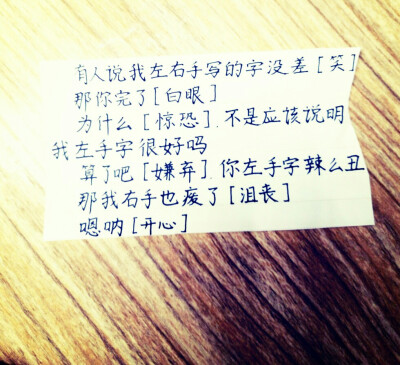 有人说我左右手写的字没差[笑]
那你完了[白眼]
为什么[惊恐].不是应该说明
我左手字很好吗
算了吧[嫌弃].你左手字辣么丑
那我右手也废了[沮丧]
嗯呐[开心]